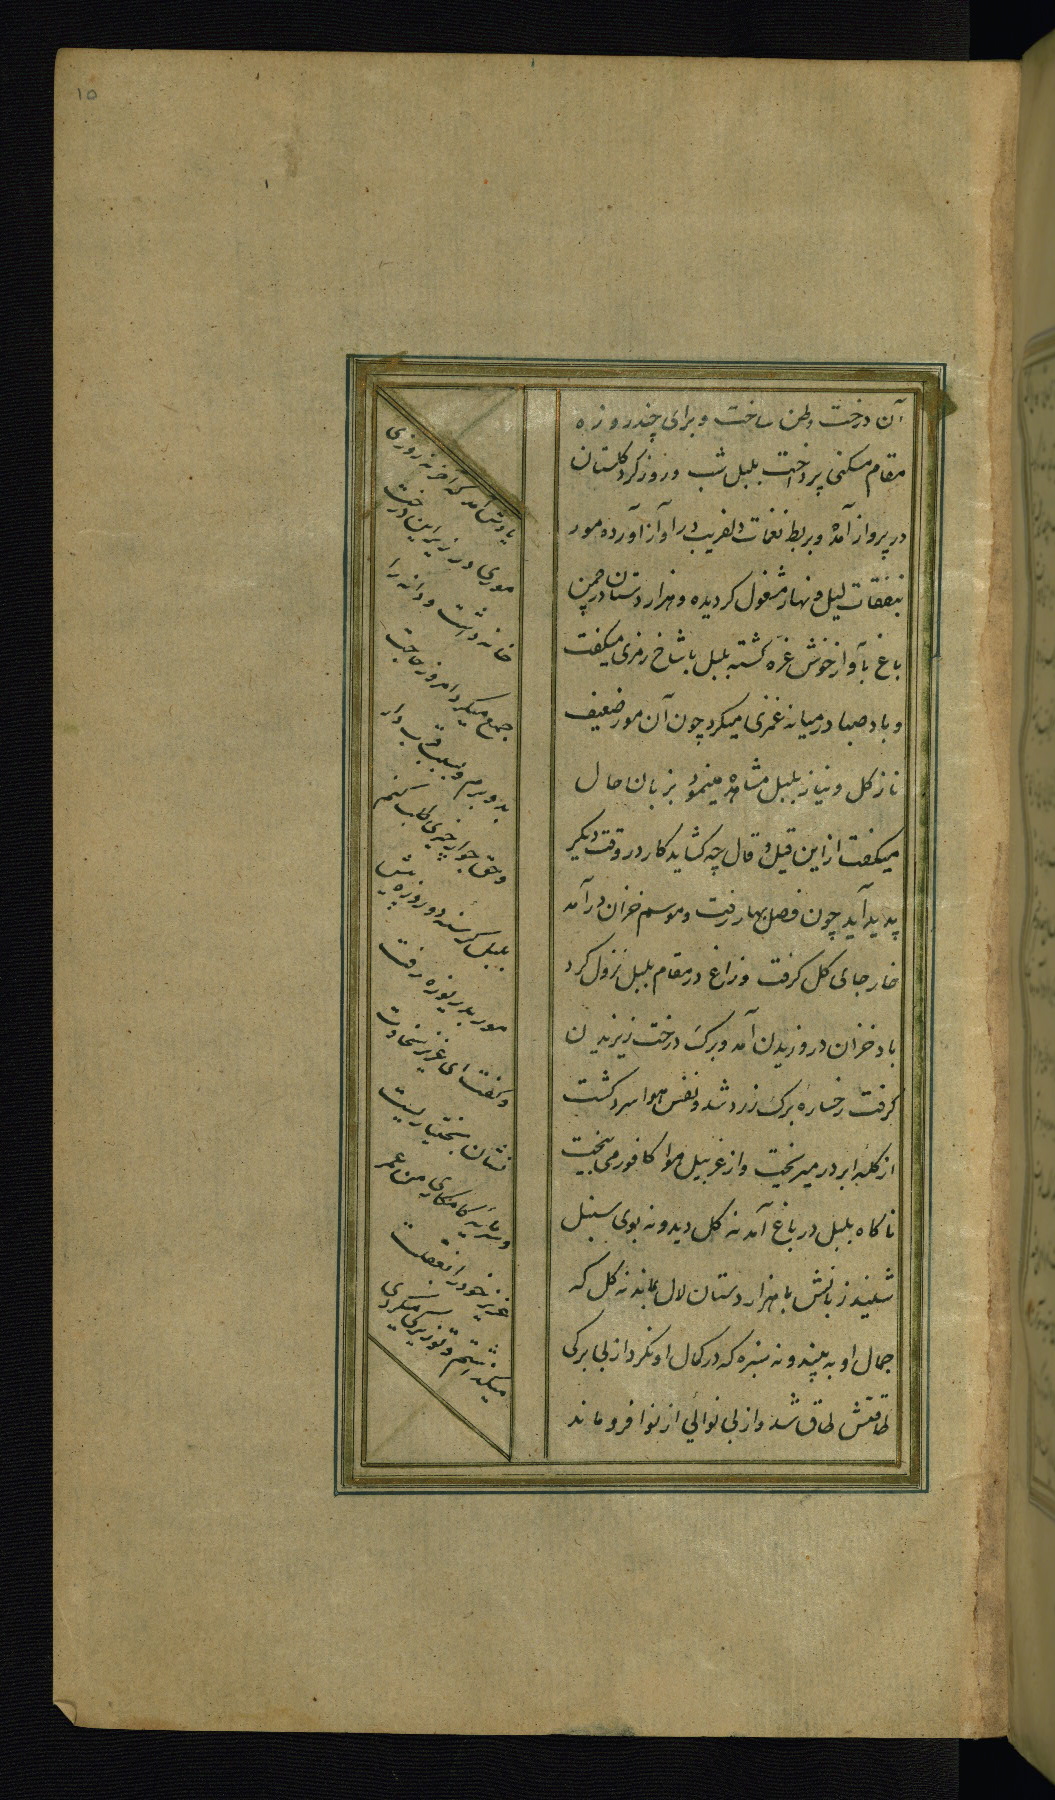 ۱۵
آن درخت وطن ساخت و برای چند روزه
مقام مسکنی پرداخت بلبل شب و روز کرد کلستان
در پرواز آمده و بربط نغمات دلفریب در آواز آورده مور
بنفقات لیل و نهار مشغول کردیده و هزاردستان در چمن
باغ بآواز خوش غره کشته بلبل با شاخ رمزی میکفت
و باد صبا در میانه غمزی میکرد چون آن مور ضعیف
ناز کل و نیاز بلبل مشاهده مینمود بزبان حال
میکفت از این قیل و قال چه کشاید کار در وقت دیکر
پدید آید چون فصل بهار رفت و موسم خزان در آمد
خار جای کل کرفت و زاغ در مقام بلبل نزول کرد
باد خزان در وزیدن آمد و برک درخت ریزیدن
کرفت رخساره برک زرد شد و نفس هوا سرد کشت
از کله ابر در میریخت و از غربیل هوا کافور می بیخت
ناکاه بلبل در باغ آمد نه کل دید و نه بوی سنبل
شنید زبانش با هزار دستان لال بماند نه کل که
جمال او به بیند و نه سبزه که در کمال او نکرد از بی برکی
طاقتش طاق شد و از بی نوائی از نوا فرو ماند
یادش آمد که آخر نه روزی
موری در زیر این درخت
خانه داشت و دانه را
جمع میکرد امروز حاجت
بدو برم و بسبب قرب دار
و حق جوار چیزی طلب کنم
بلبل کرسنه ده روزه پیش
مور بدریوزه رفت
و کفت ای عزیز سخاوت
نشان بختیاریست
و سرمایه کامکاری من عمر
عزیز خود را بغفلت
میکذاشتم و تو زیرکی میکردی